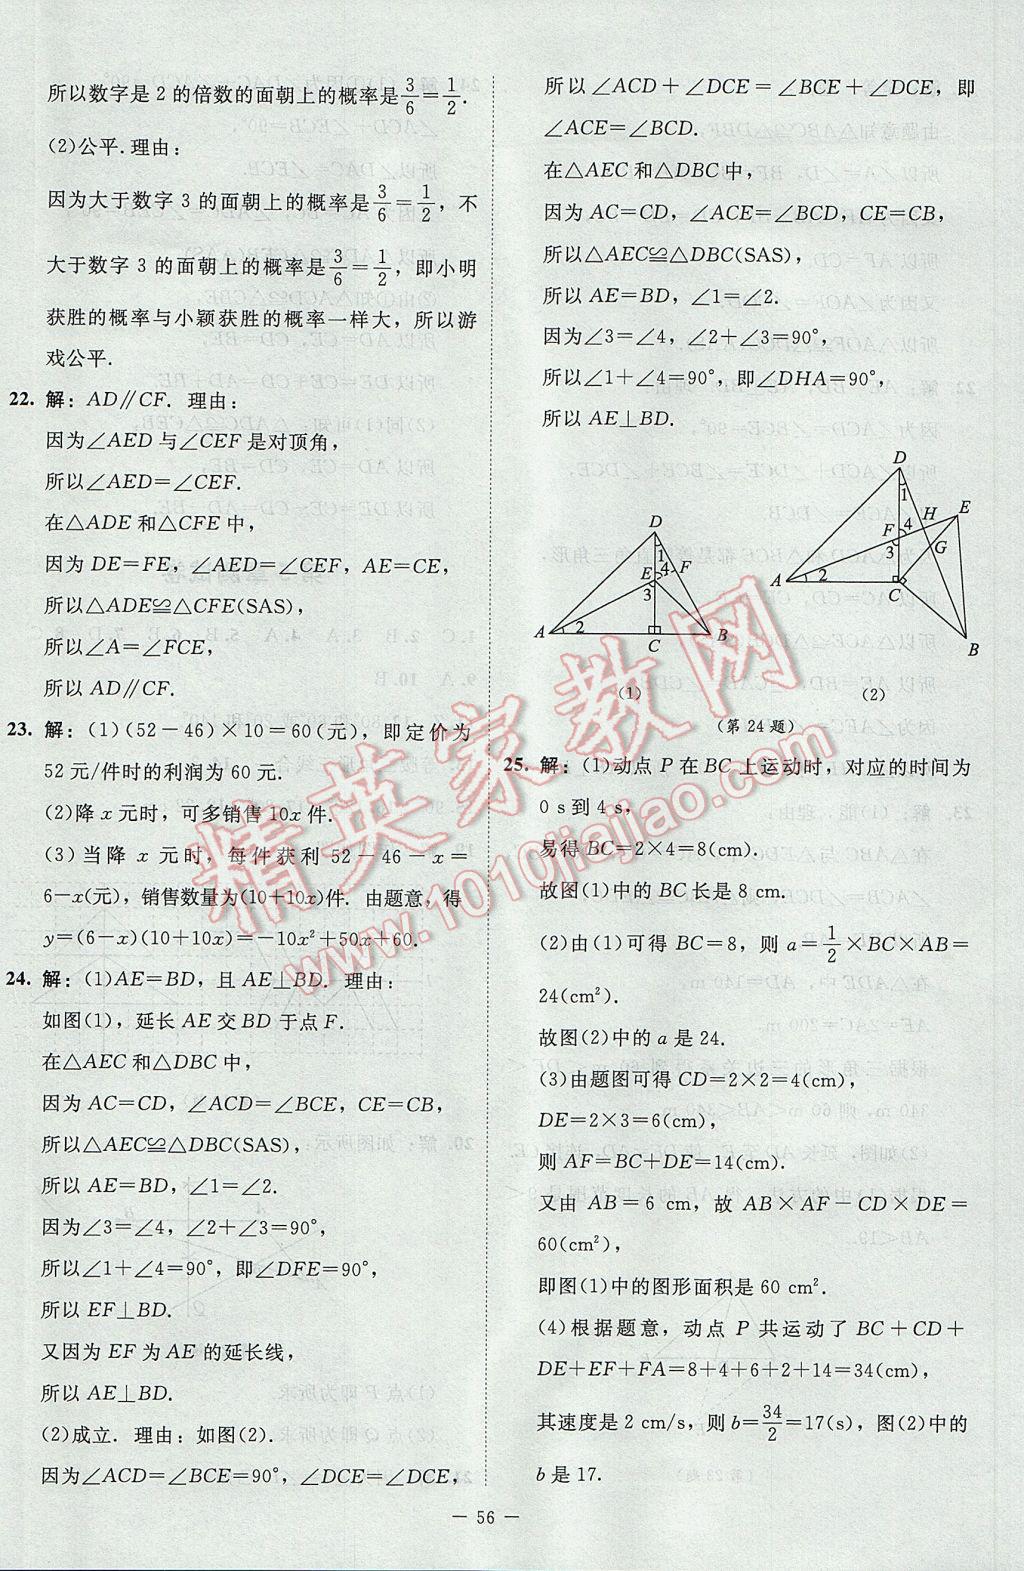 所以数字是 2 的倍数的面朝上的概率是3/6=1/2.
(2)公平.理由:
因为大于数字 3 的面朝上的概率是3/6=1/2, 不
大于数字 3 的面朝上的概率是3/6=1/2, 即小明
获胜的概率与小颖获胜的概率一样大, 所以游
戏公平.
22. 解: AD∥CF. 理由:
因为∠AED 与∠CEF 是对顶角,
所以∠AED=∠CEF.
在△ADE 和△CFE 中,
因为 DE=FE, ∠AED=∠CEF, AE=CE,
所以△ADE≌△CFE(SAS),
所以∠A=∠FCE,
所以 AD∥CF.
23. 解: (1)(52-46)×10=60(元), 即定价为
52 元/件时的利润为 60 元.
(2)降 x 元时, 可多销售 10x 件.
(3)当降 x 元时, 每件获利 52-46-x=
6-x(元), 销售数量为(10+10x)件. 由题意, 得
y=(6-x)(10+10x)=-10x²+50x+60.
24. 解: (1)AE=BD, 且 AE⊥BD. 理由:
如图(1), 延长 AE 交 BD 于点 F.
在△AEC 和△DBC 中,
因为 AC=CD, ∠ACD=∠BCE, CE=CB,
所以△AEC≌△DBC(SAS),
所以 AE=BD, ∠1=∠2.
因为∠3=∠4, ∠2+∠3=90°,
所以∠1+∠4=90°, 即∠DFE=90°,
所以 EF⊥BD.
又因为 EF 为 AE 的延长线,
所以 AE⊥BD.
(2)成立. 理由: 如图(2).
因为∠ACD=∠BCE=90°, ∠DCE=∠DCE,
所以 ∠ACD+∠DCE=∠BCE+∠DCE, 即
∠ACE=∠BCD.
在△AEC 和△DBC 中,
因为 AC=CD, ∠ACE=∠BCD, CE=CB,
所以△AEC≌△DBC(SAS),
所以 AE=BD, ∠1=∠2.
因为∠3=∠4, ∠2+∠3=90°,
所以∠1+∠4=90°, 即∠DHA=90°,
所以 AE⊥BD.
D
1
E 4 F
3
A 2 C B
(1)
D
1
H E
F 4
3 G
A 2
C
B
(2)
(第 24 题)
25. 解: (1)动点 P 在 BC 上运动时, 对应的时间为
0 s 到 4 s,
易得 BC=2×4=8(cm).
故图(1)中的 BC 长是 8 cm.
(2)由(1)可得 BC=8, 则 a=1/2×BC×AB=
24(cm²).
故图(2)中的 a 是 24.
(3)由题图可得 CD=2×2=4(cm),
DE=2×3=6(cm),
则 AF=BC+DE=14(cm).
又由 AB=6 cm, 故 AB×AF-CD×DE=
60(cm²),
即图(1)中的图形面积是 60 cm².
(4)根据题意, 动点 P 共运动了 BC+CD+
DE+EF+FA=8+4+6+2+14=34(cm),
其速度是 2 cm/s, 则 b=34/2=17(s), 图(2)中的
b 是 17.
精英家教网
www.1010jiajiao.com
— 56 —